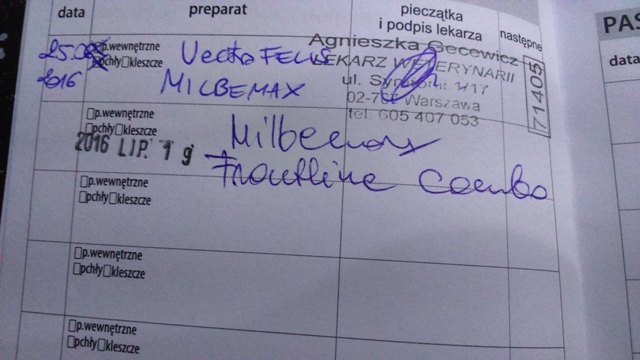 data
preparat
pieczątka
i podpis lekarza
następne
25.
2016
p.wewnętrzne
pchły kleszcze
Vectra FELIS
MILBEMAX
Agnieszka Gecewicz
LEKARZ WETERYNARII
ul.
02-7 Warszawa
tel. 605 407 053
71405
p.wewnętrzne
pchły kleszcze
2016 LIP. 1 9
Milbemax
Frontline Combo
p.wewnętrzne
pchły kleszcze
p.wewnętrzne
pchły kleszcze
p.wewnętrzne
pchły kleszcze
PAS
data